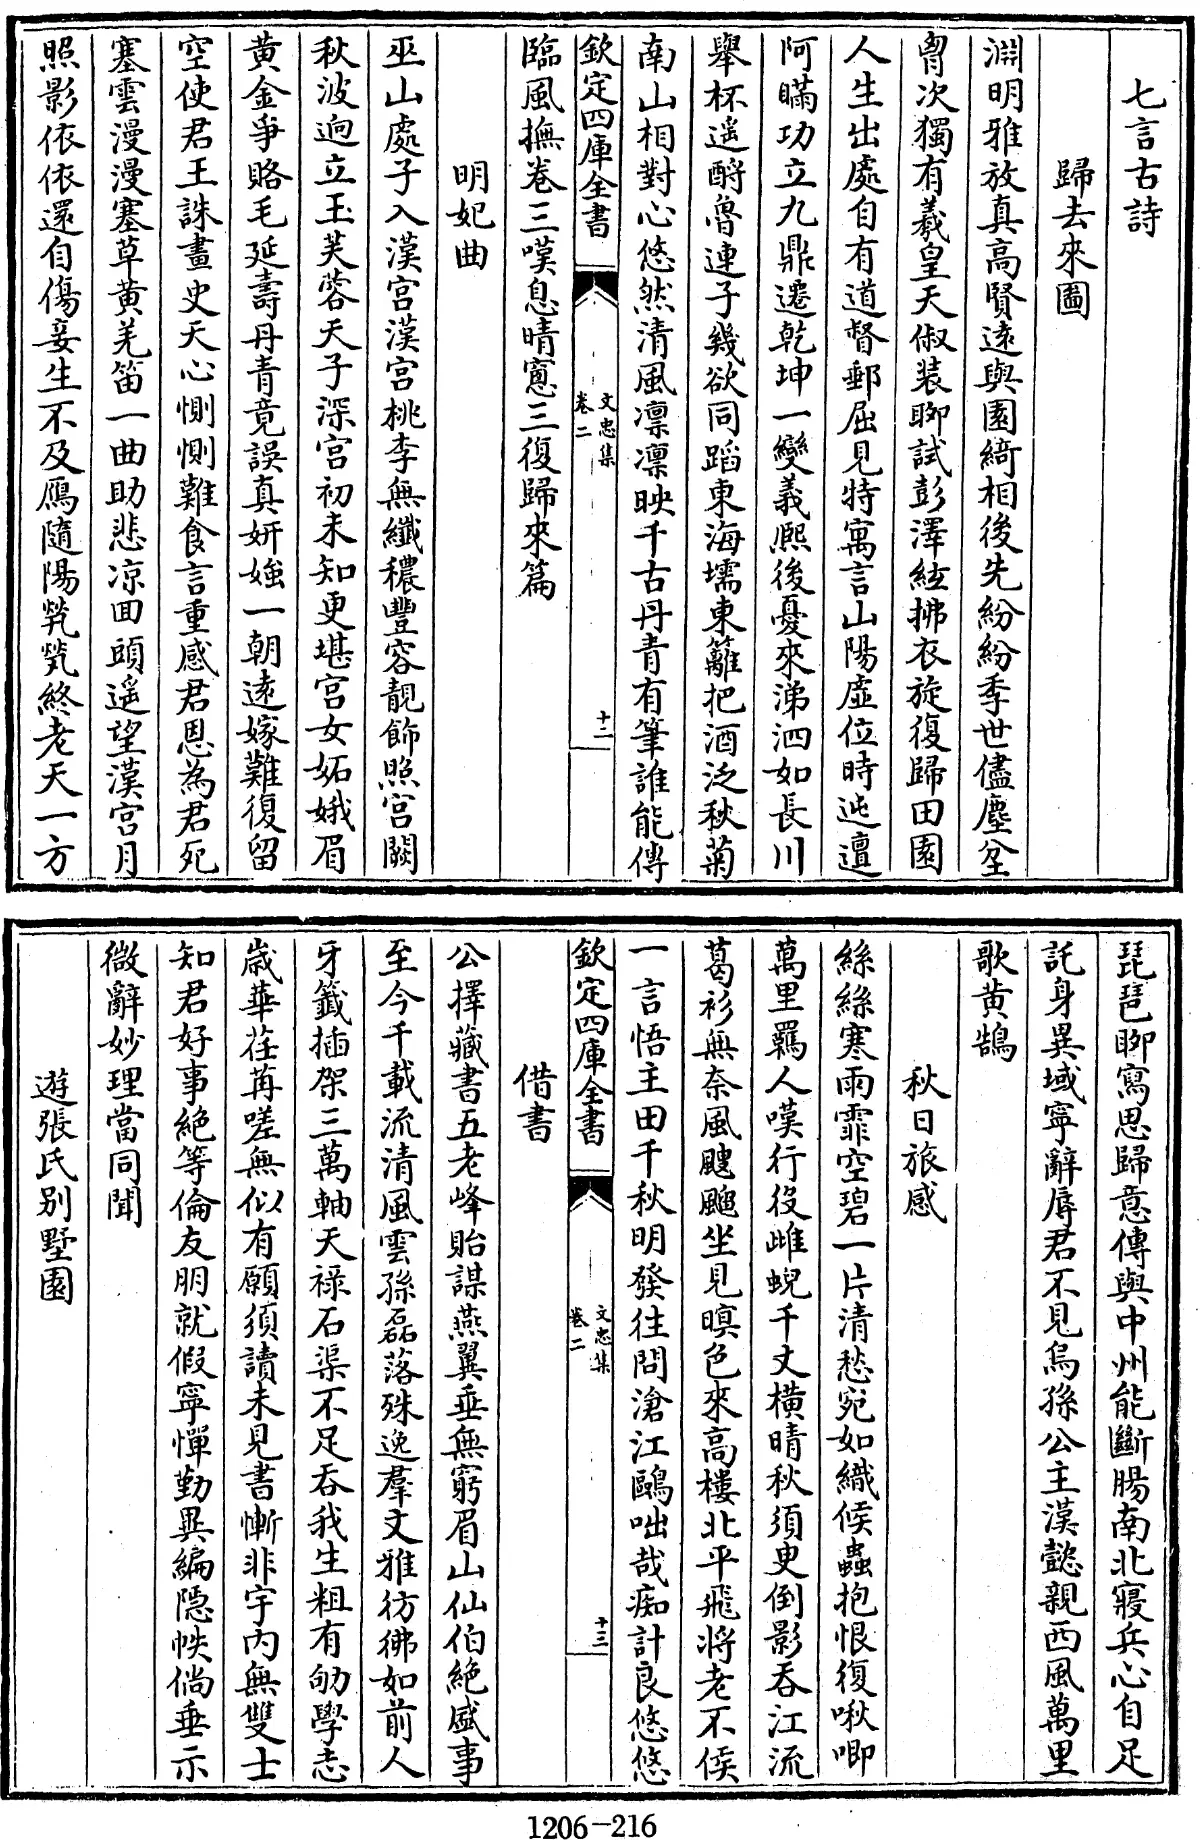 七言古詩
歸去來圖
淵明雅放真高賢遠與園綺相後先紛紛季世儘塵坌
胷次獨有羲皇天俶装聊試彭澤絃拂衣旋復歸田園
人生出處自有道督郵屈見特寓言山陽虛位時迍邅
阿瞞功立九鼎遷乾坤一變義熙後憂來涕泗如長川
舉杯遥酹魯連子幾欲同蹈東海壖東籬把酒泛秋菊
南山相對心悠然清風凛凛映千古丹青有筆誰能傳
欽定四庫全書
文忠集
卷二
十二
臨風撫卷三嘆息晴窻三復歸來篇
明妃曲
巫山處子入漢宫漢宫桃李無纖穠豐容靚飾照宫闕
秋波逈立玉芙蓉天子深宫初未知更堪宫女妬娥眉
黄金爭賂毛延壽丹青竟誤真妍媸一朝逺嫁難復留
空使君王誅畫史天心惻惻難食言重感君恩為君死
塞雲漫漫塞草黄羌笛一曲助悲凉回頭遥望漢宫月
照影依依還自傷妾生不及鴈隨陽煢煢終老天一方
琵琶聊寫思歸意傳與中州能斷腸南北寢兵心自足
託身異域寧辭辱君不見烏孫公主漢懿親西風萬里
歌黄鵠
秋日旅感
絲絲寒雨霏空碧一片清愁宛如織候蟲抱恨復啾唧
萬里羈人嘆行役雌蜺千丈横晴秋須臾倒影吞江流
葛衫無奈風颼飀坐見暝色來高樓北平飛將老不侯
一言悟主田千秋明發往問滄江鷗咄哉痴計良悠悠
欽定四庫全書
文忠集
卷二
十三
借書
公擇藏書五老峰貽謀燕翼垂無窮眉山仙伯絶盛事
至今千載流清風雲孫磊落殊逸羣文雅彷彿如前人
牙籤插架三萬軸天禄石渠不足吞我生粗有劬學志
歳華荏苒嗟無似有願須讀未見書慚非宇内無雙士
知君好事絶等倫友朋就假寧憚勤異編隠帙倘垂示
微辭妙理當同聞
遊張氏别墅園
1206-216